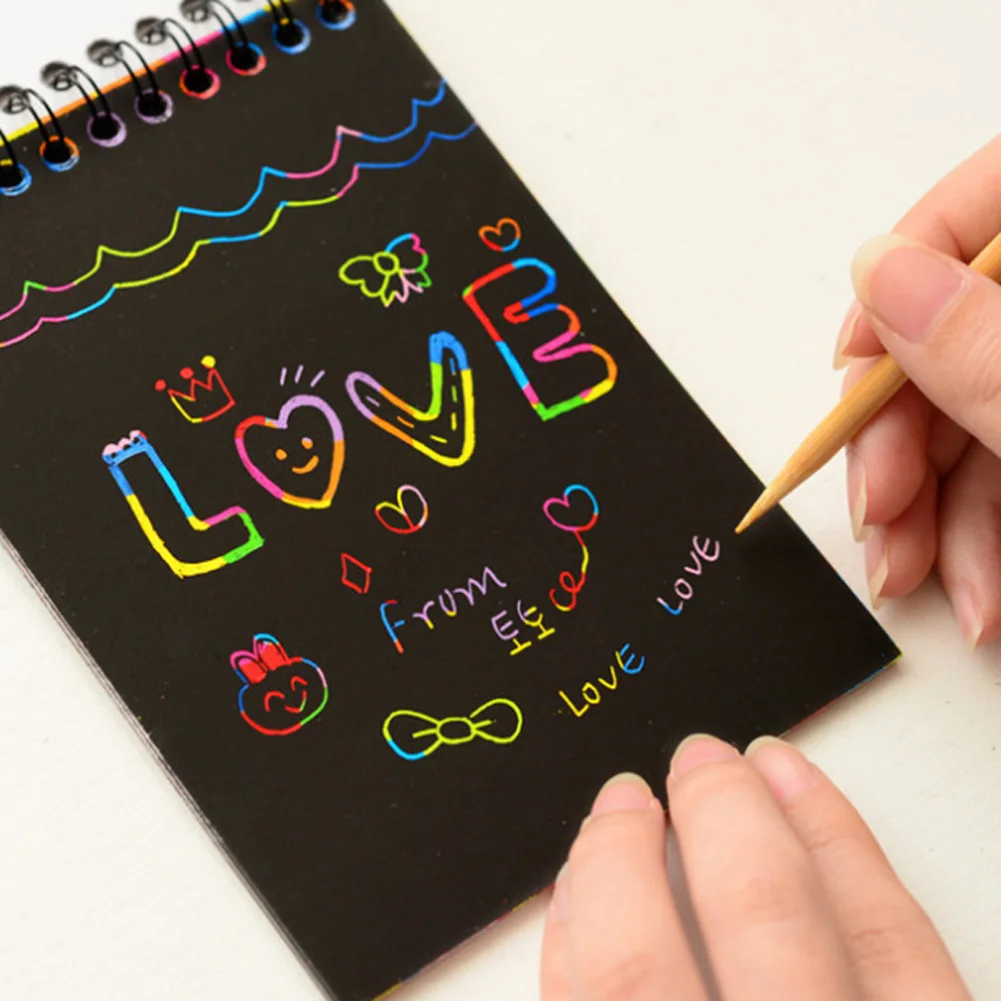 LOVE
From
토토
LOVE
LOVE